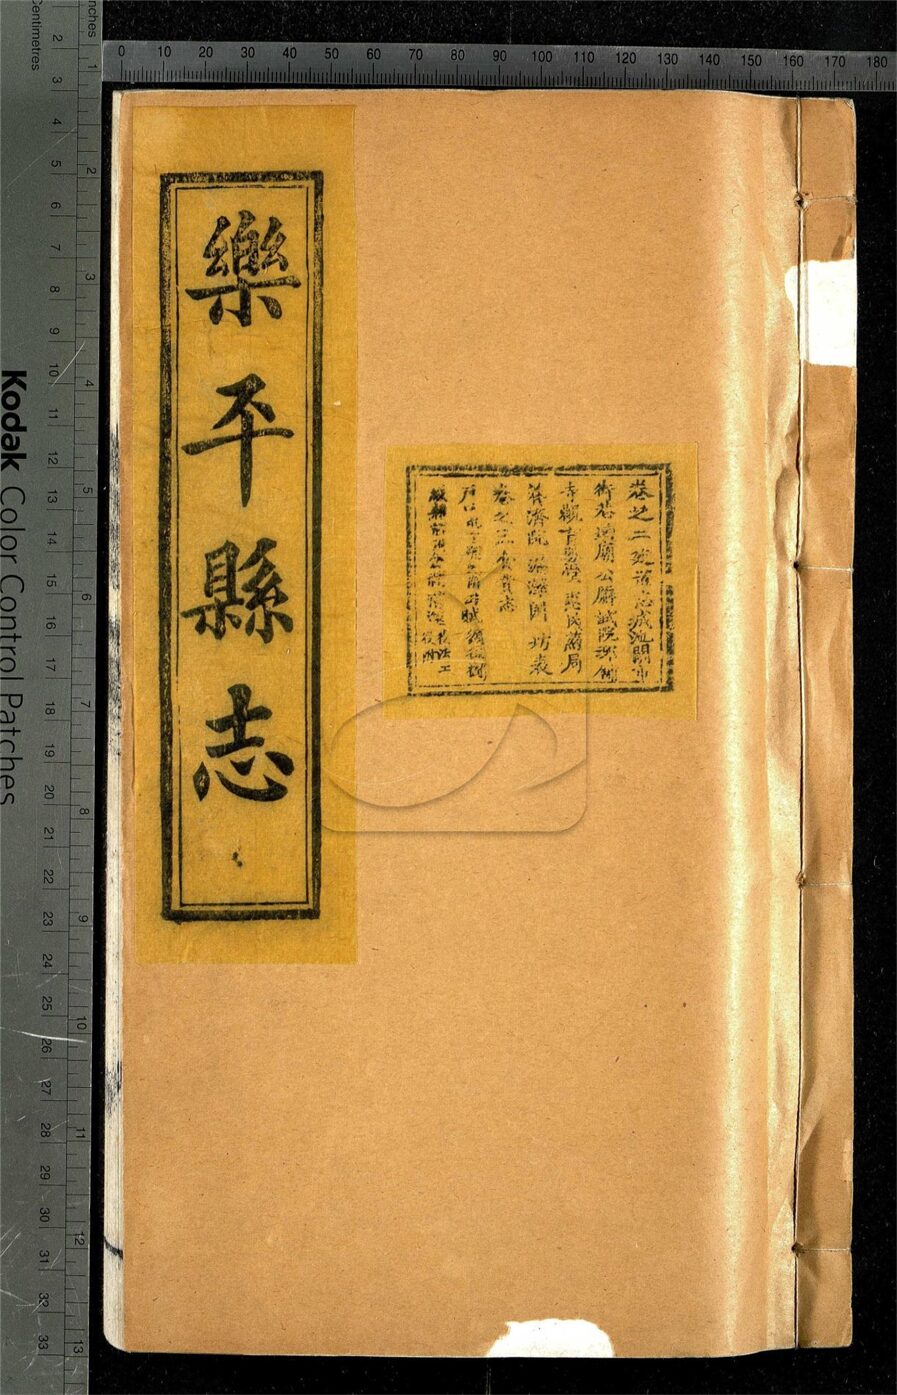 樂平縣志
卷之二建置志城池關市
街巷壇廟公廨試院
寺觀育嬰堂惠民藥局
普濟院 坊表
卷之三食貨志
Kodak Color Control Patches
Centimetres
inches
0 10 20 30 40 50 60 70 80 90 100 110 120 130 140 150 160 170 180
2 3 4 5 6 7 8 9 10 11 12 13 14 15 16 17 18 19 20 21 22 23 24 25 26 27 28 29 30 31 32 33
1 2 3 4 5 6 7 8 9 10 11 12 13